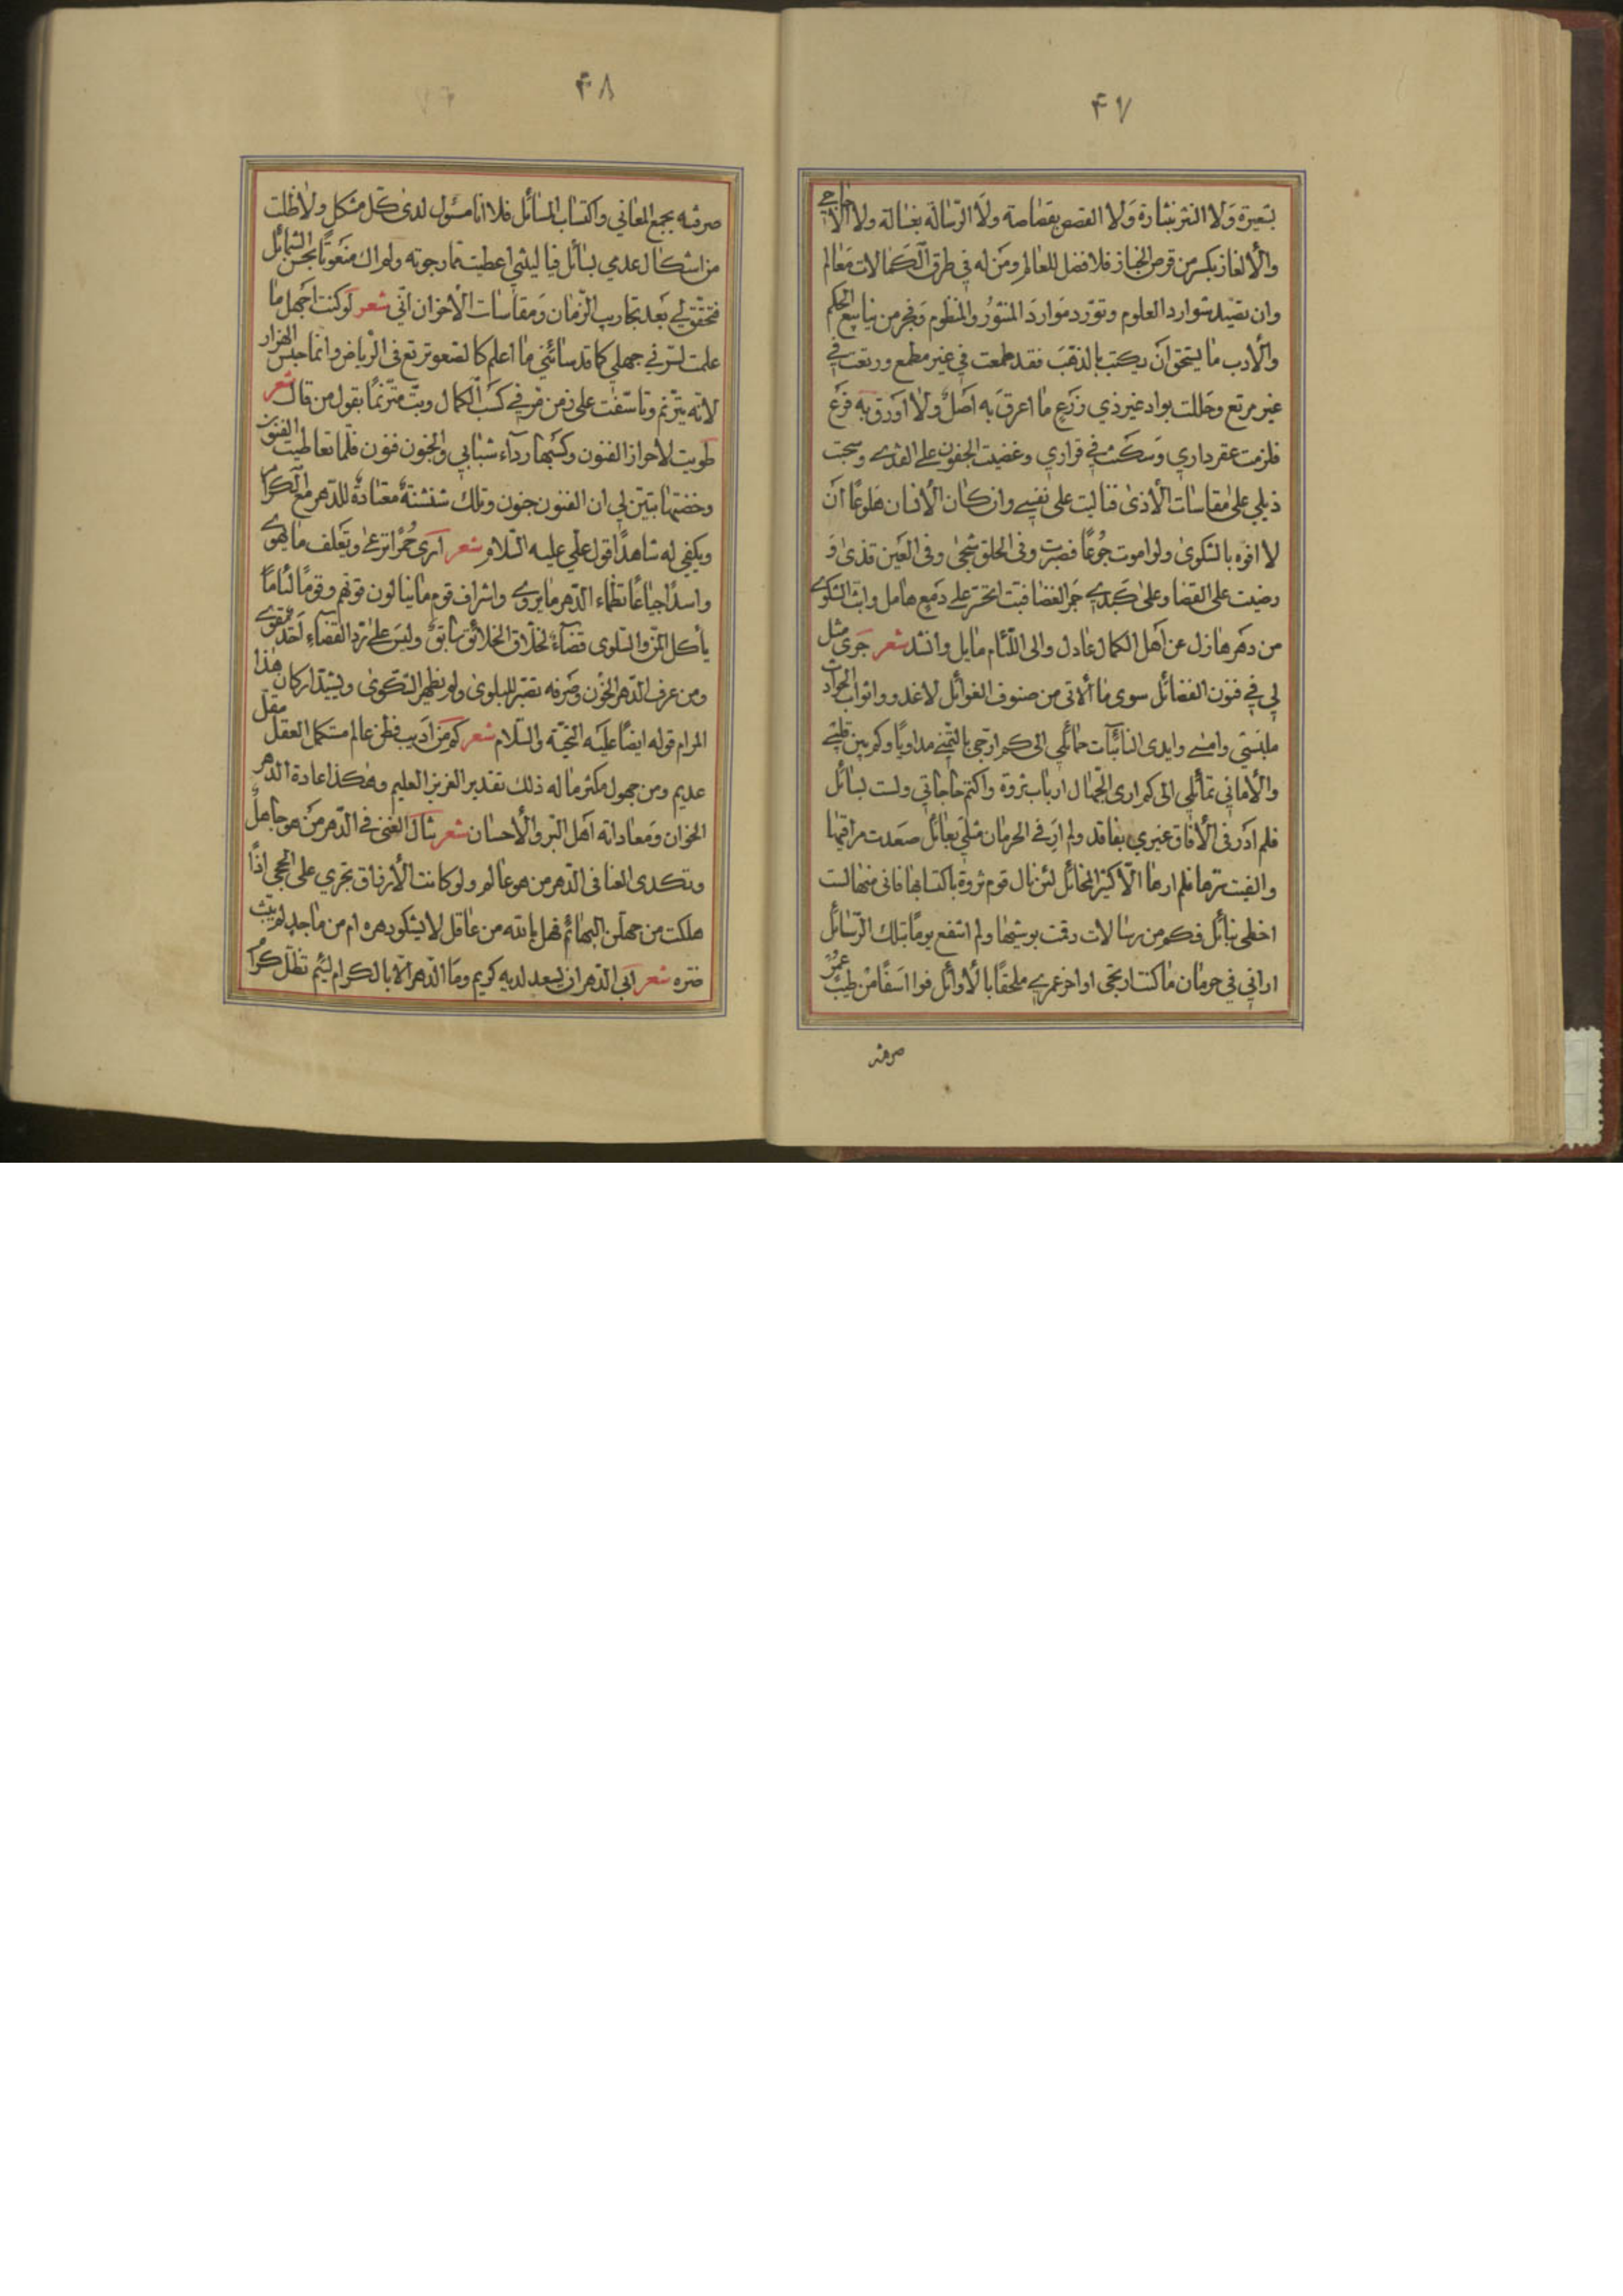 ۴۷
بشعيرة وَلا النثر بنثارة وَلا القصص بقصاصة ولَا الرّسالة بغسالة ولا الأحاجي
والألغاز بكسر من قرص الخباز فلا فضل للعالم ومَن له في طرق الكَمالات مَعالم
وان تصيّد شوارد العلوم وتورّد مَواردَ المنثوُر والمنظوم وَفجر من ينابيع الحكم
والأدب ما يستحق انَ يكتب بالذهَب فقد طمعت في غير مطمع ورتعت في
غير مرتع وحَللت بواد غير ذي زَرَع ما اعرقَ به اَصَل ولا اَورَق به فَرَع
فلزمت عقر داري وَسكنت في قراري وغضيت الجفون على القذى وسحبت
ذيلي على مقاسات الأذى فآليت على نفسي وان كان الأنسان هَلوعًا انَ
لا افوه بالشكوى ولو اموت جُوعًا فصبرت وفى الحلق شجى وفى العَين قذى وَ
رضيت على القضا وعلى كَبدي جَمر الغضا فبت اتحسّر على دَمَعٍ هامل وابث الشكوى
من دهَر هازل عن اَهل الكمال عادل والى اللّئام مايل وانشد شعر جَرى مثل
لي في فنون الفضائل سوى ما اُلاقى من صنوف الغوائل لاغدو واثواب الحوادث
ملبستي وامسي وايدى النائبات حمائلي الى كم ارتجى بالتمني مداويًا وكم بين قلبي
والأماني تمائلي الى كم ارى الجهّال ارباب ثروة واكتم حاجاتي ولست بسائل
فلم اَدَر فى الأفاق غيري بفاقد ولم ارَ في الحرمان مثلي بعائل صعَدت مراقيها
والفيت ترّها فلم ارها الّا كثير المخائل لئن نال قوم ثروة باكتسابها فانى منها لست
اخطى بنائل فكم من رسالات رقت بوشيها ولم انتفع يومًا بتلك الرّسائل
اراني في حرمان ما كنت ارتجى اواخر عمري ملحقًا بالأوائل فوا اسَفًا من طيب عمُرٍ
صرفته
۴۸
صرفته بجمع المعاني واكتساب المسائل فلا انا مسئول لدى كلّ مشكل ولا ظلت
من اشكال عدمي بسائل فيا ليتني اعطيت ما رجوته ولم اك منَعوتًا بحسن الشمائل
فتحقق لي بَعد تجاريب الزّمان وَمقاسات الأخوان انّي شعر لو كنت اجَهل ما
علمت لسرّني جهلي كما قد سائني ما اعلم كالصعو ترتع فى الرياض وانما حبس الهزار
لانه يترنم وتاسّفت على زمن مرّ في كسَب الكمال وبتّ مترّنمًا بقول من قال شعر
طويت لأحراز الفنون وكسَبها رداء شبابي والجنون فنون فلّما تعاطيت الفنون
وخضتها تبيّن لي ان الفنون جنون وتلك شنشنةٌ معتادةٌ للدّهر مع الكرام
ويكفي له شاهدًا قول علي عليه السّلام شعر اَرى حُمُرًا ترعى وتَعلف ما تهوى
واسدًا جياعًا تظماء الدّهر ما يروى واشراف قوم ما ينالون قوتهم وقومًا لئامًا
يأكل المنّ والسّلوى قضاءٌ لخلّاق الخلائق سابقٌ وليسَ على ردّ القضاءِ اَحَد يقوى
ومن عرف الدّهر الخؤن وصَرفه تصبّر للبلوى ولم يظهر الشكوى ويشيّد اركان هذا
المرام قوله ايضًا عليَه التحيّة والسّلام شعر كم مَن اَديب فطن عالم مستكمل العقل مقلّ
عديم ومن جهول مكثر ماله ذلك تقدير العزيز العليم وهكذا عادة الدّهر
الخوان وَمعاداته اَهل البّر والأحسان شعر ينال الغنى في الدّهر من هو جاهلٌ
وتكدى العنا فى الدّهر من هو عالم ولو كانت الأرزاق تجري على الحجى اذًا
هلكت من جهلهن البهائم فهل بالله من عاقل لا يشكو دهره ام من ماجد لم يبثّ
ضرّه شعر ابى الدّهر ان يسعد لديه كريم ومَا الدّهر الّا بالكرام ليئم تظلّ كرامُ